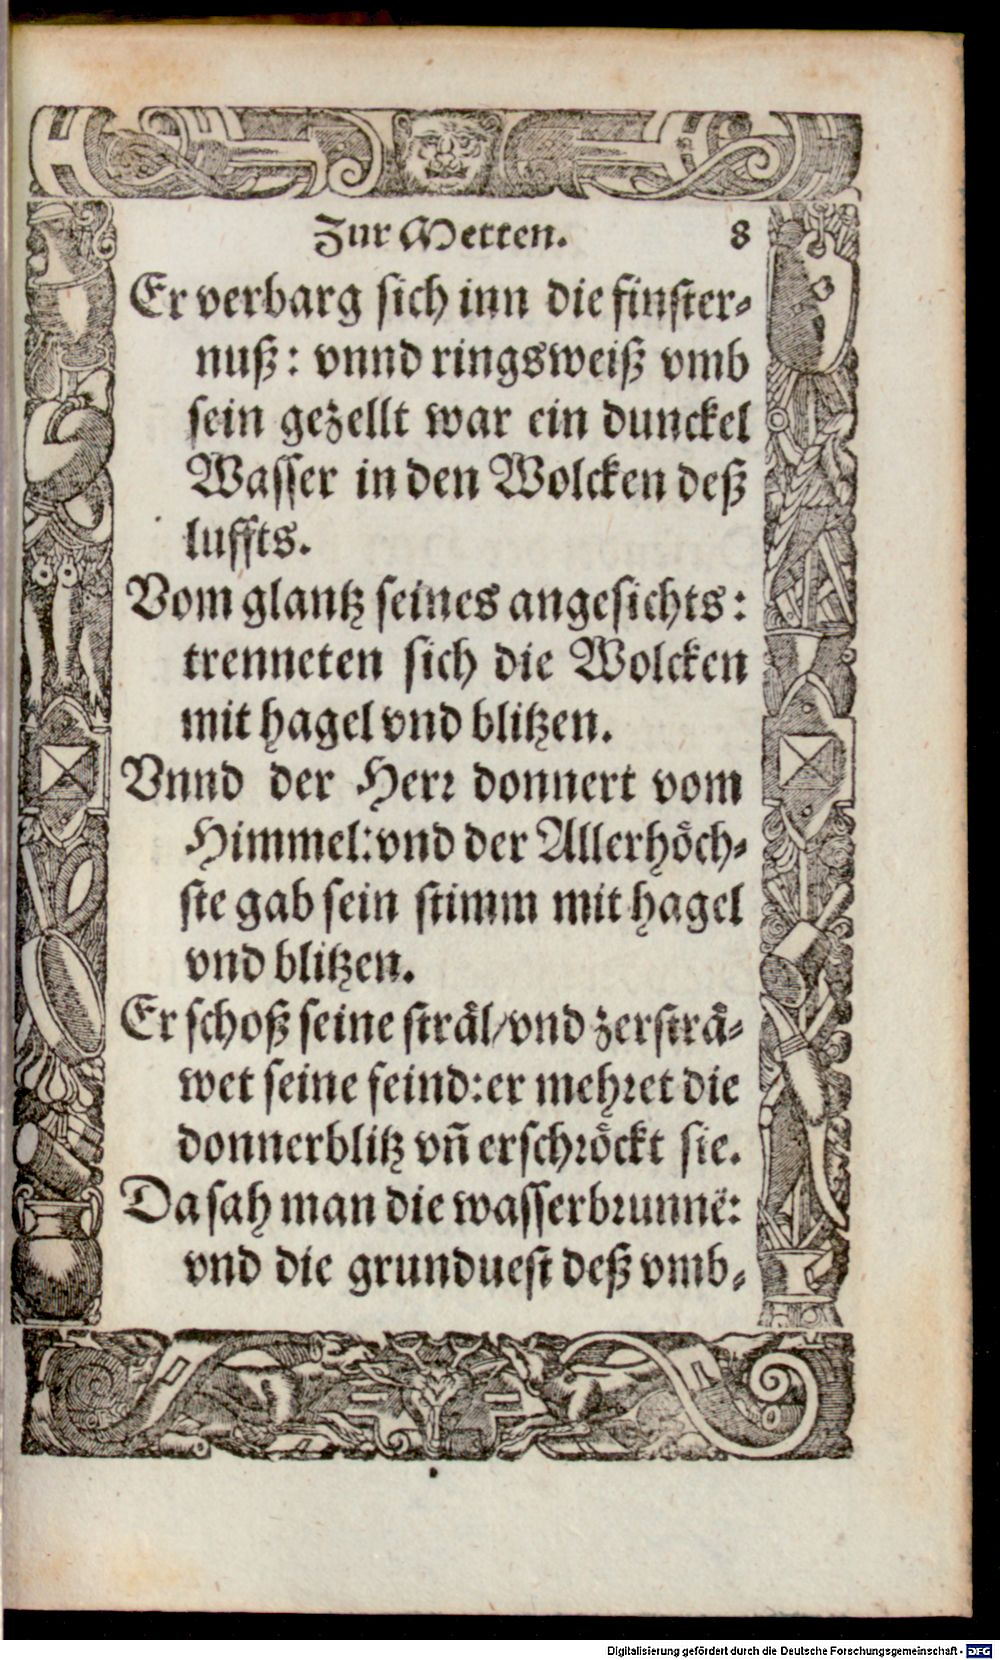 Zur Metten. 8
Er verbarg sich inn die finster-
nuß: vnnd ringsweiß vmb
sein gezellt war ein dunckel
Wasser in den Wolcken deß
luffts.
Vom glantz seines angesichts:
trenneten sich die Wolcken
mit hagel vnd blitzen.
Vnnd der Herr donnert vom
Himmel: vnd der Allerhöch-
ste gab sein stimm mit hagel
vnd blitzen.
Er schoß seine strål/ vnd zerstrå-
wet seine feind: er mehret die
donnerblitz vñ erschröckt sie.
Da sah man die wasserbrunnē:
vnd die grunduest deß vmb-
Digitalisierung gefördert durch die Deutsche Forschungsgemeinschaft - DFG